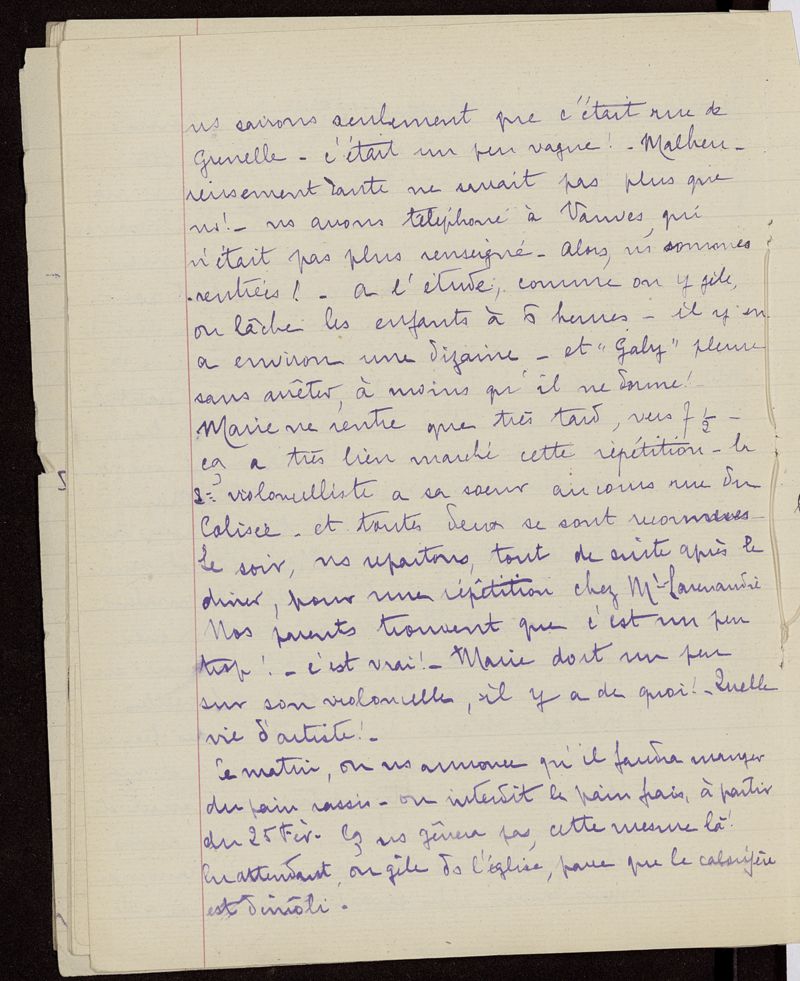 ns savions seulement que c'était rue de
Grenelle - c'était un peu vague! - Malheu-
reusement Tante ne savait pas plus que
ns! - ns avons téléphoné à Vanves, qui
n'était pas plus renseigné - Alors, ns sommes
rentrées! - A l'étude, comme on y gèle,
on lâche les enfants à 5 heures - il y en
a environ une dizaine - et "Gaby" pleure
sans arrêter, à moins qu'il ne dorme!
Marie ne rentre que très tard, vers 7 1/2 -
ça a très bien marché cette répétition - la
2e violoncelliste a sa soeur au cours rue du
Colisée - et toutes deux se sont reconnues -
Le soir, ns repartons, tout de suite après le
dîner, pour une répétition chez Mr
Nos parents trouvent que c'est un peu
trop! - c'est vrai! - Marie dort un peu
sur son violoncelle, il y a de quoi! - Quelle
vie d'artiste! -
Ce matin, on ns annonce qu'il faudra manger
du pain rassis - on interdit le pain frais, à partir
du 25 Fév. Ça ns gênera pas, cette mesure là!
En attendant, on gèle ds l'église, parce que le calorifère
est démoli.